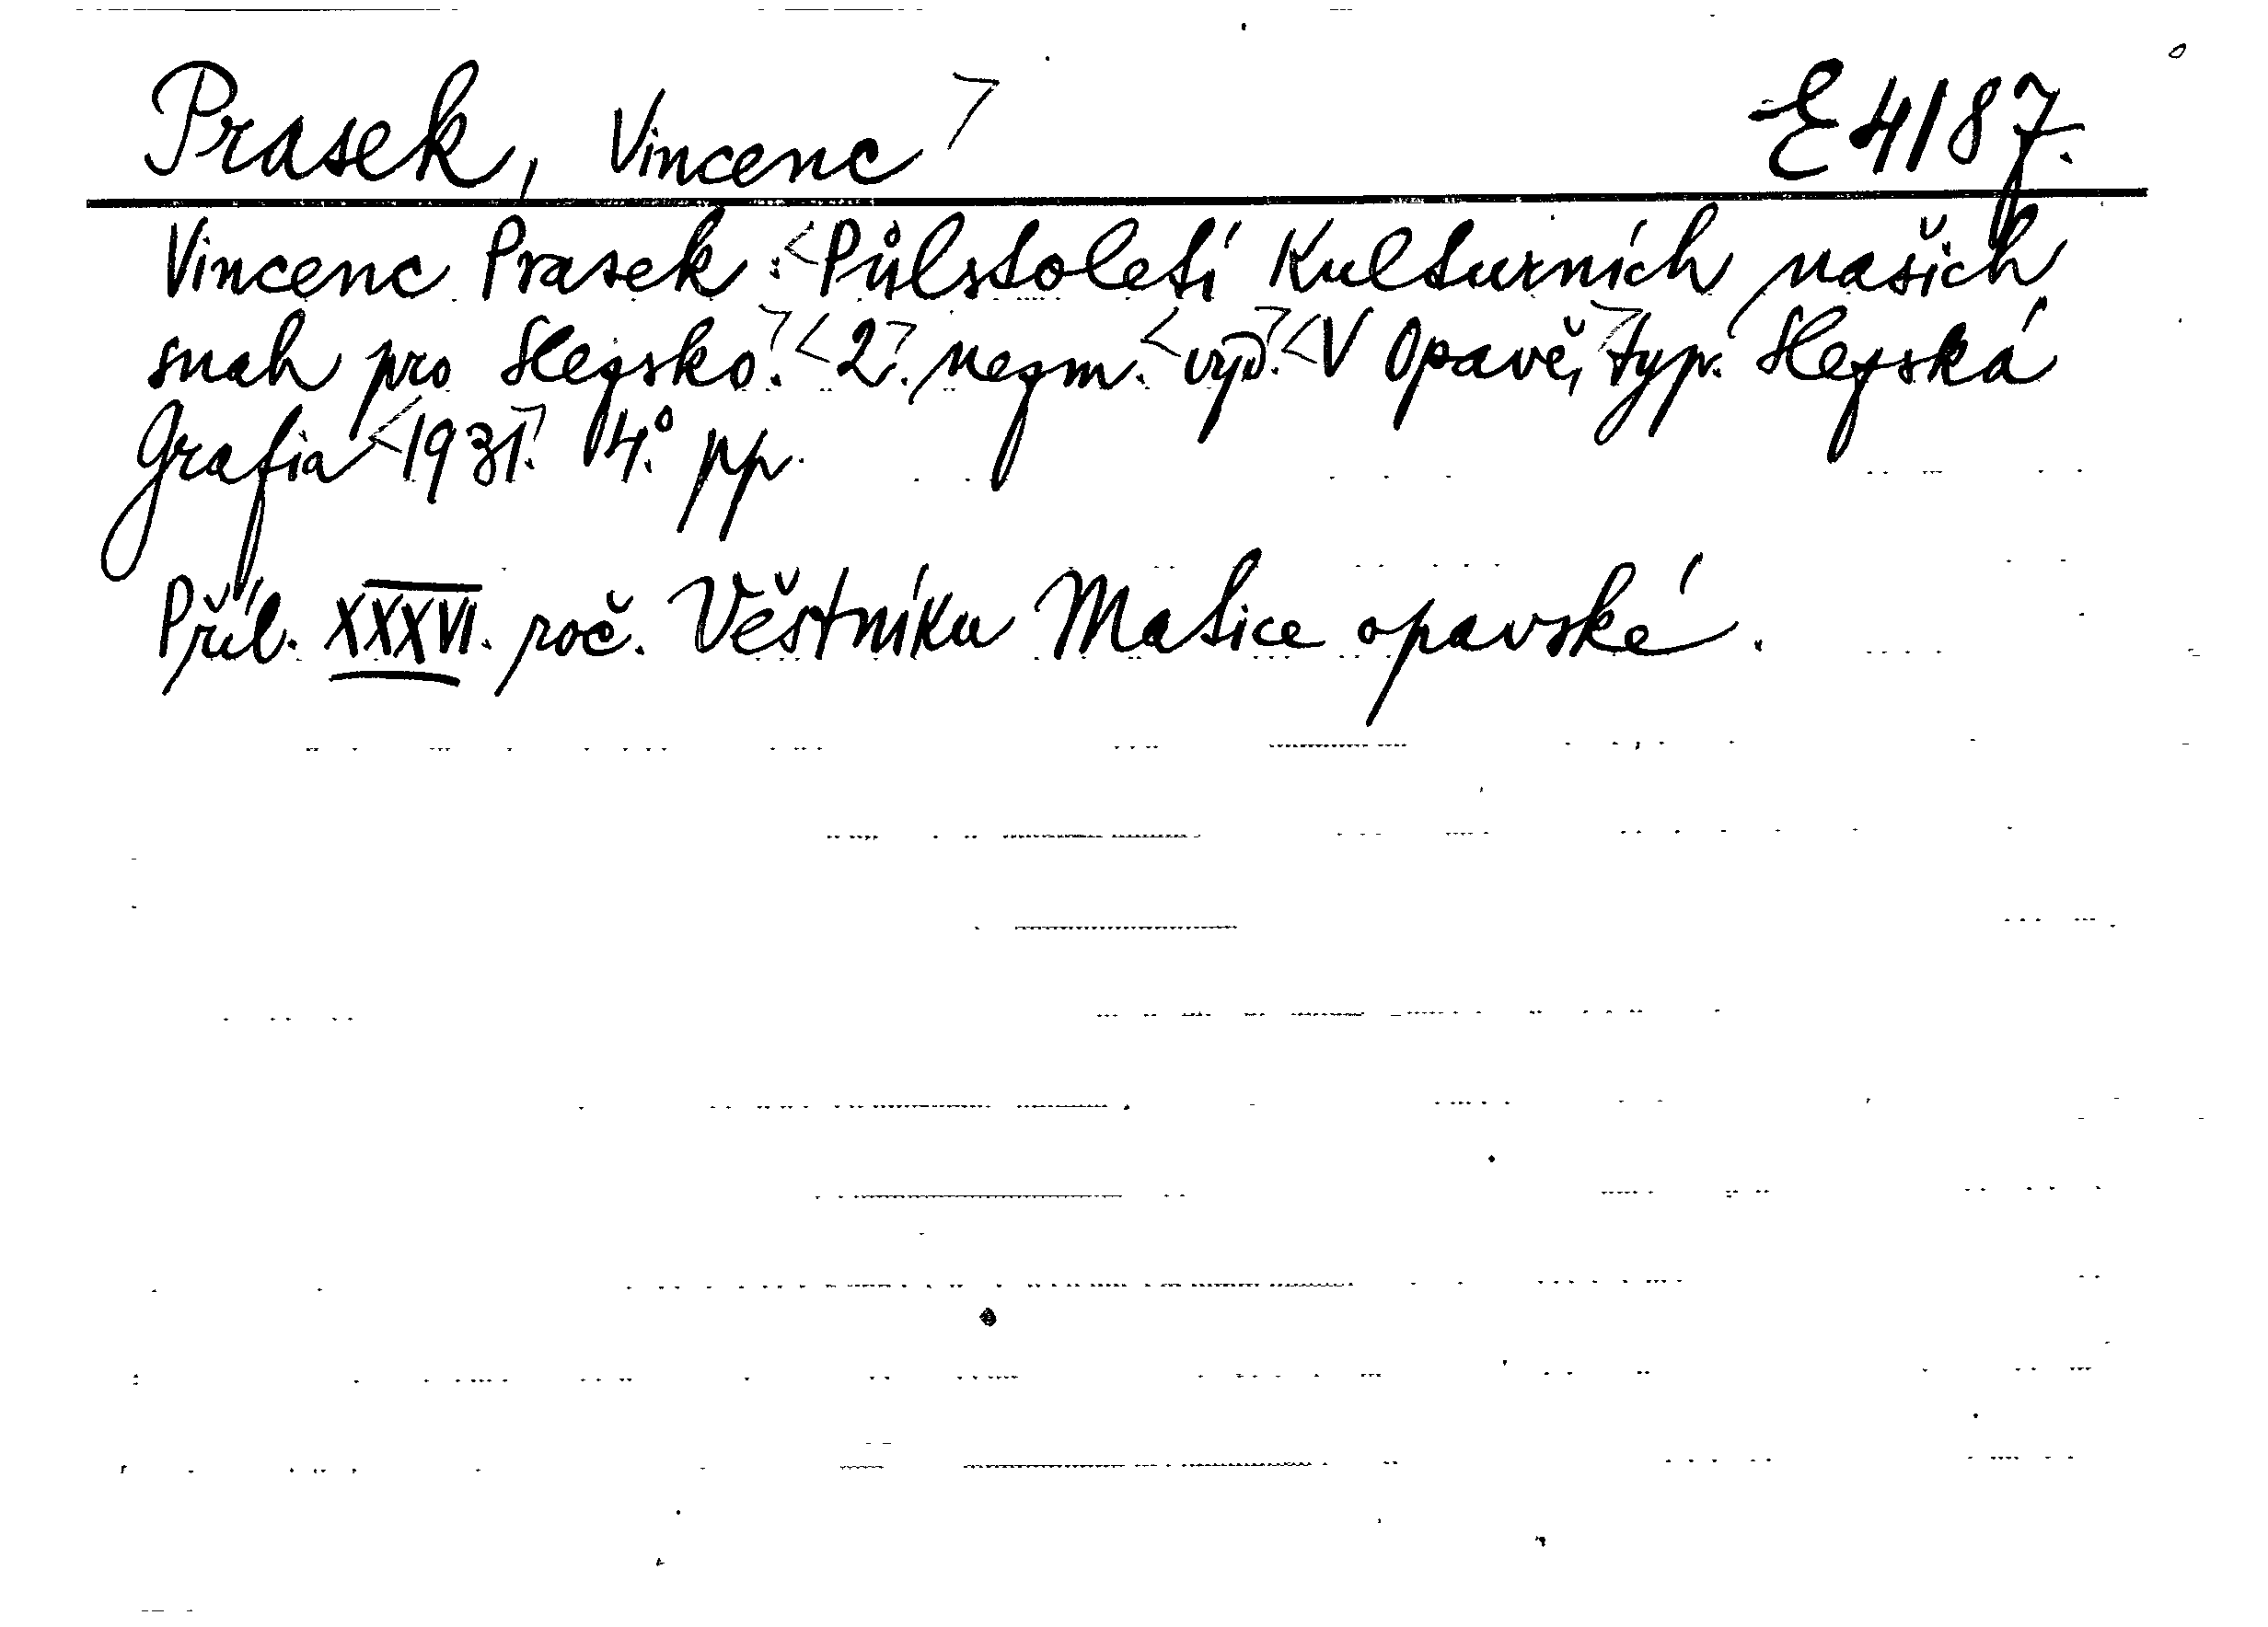 Prasek, Vincenc E 4187.
Vincenc Prasek: Půlstoletí kulturních našich
snah pro Slezsko. 2. nezm. vyd. V Opavě, typ. Slezská
Grafia 1931. 4° pp.
Příl. XXXVI. roč. Věstníku Matice opavské.